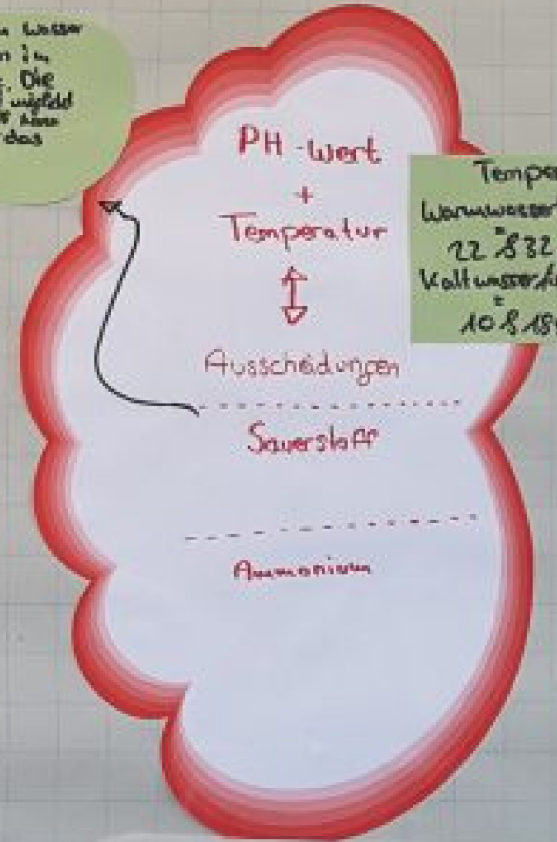 Wasser
in
Die
das
PH-Wert
+
Temperatur
Ausscheidungen
Sauerstoff
Ammonium
Tempe
Warmwasser
=
22 & 32
Kaltwasser
=
10 & 18